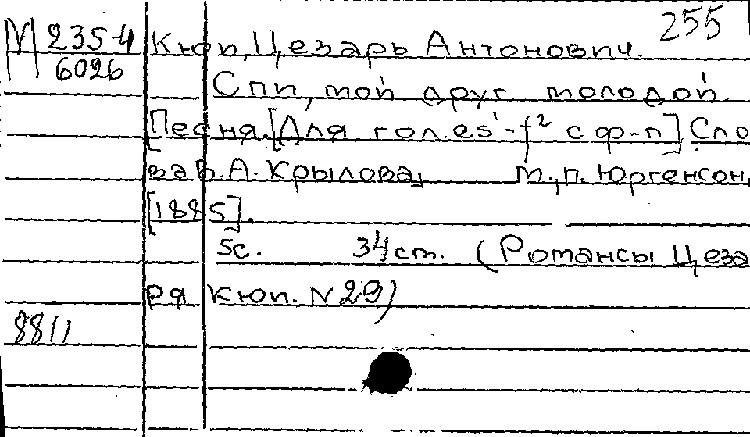 255
М 235-4 Кюи, Цезарь Антонович.
6026
Спи, мой друг молодой.
Песня. [Для гол. es¹-f² с ф-п] Сло
ва В. А. Крылова, М., П. Юргенсон,
[1885].
5с. 34 ст. (Романсы Цеза
ря Кюи. N 29)
8811